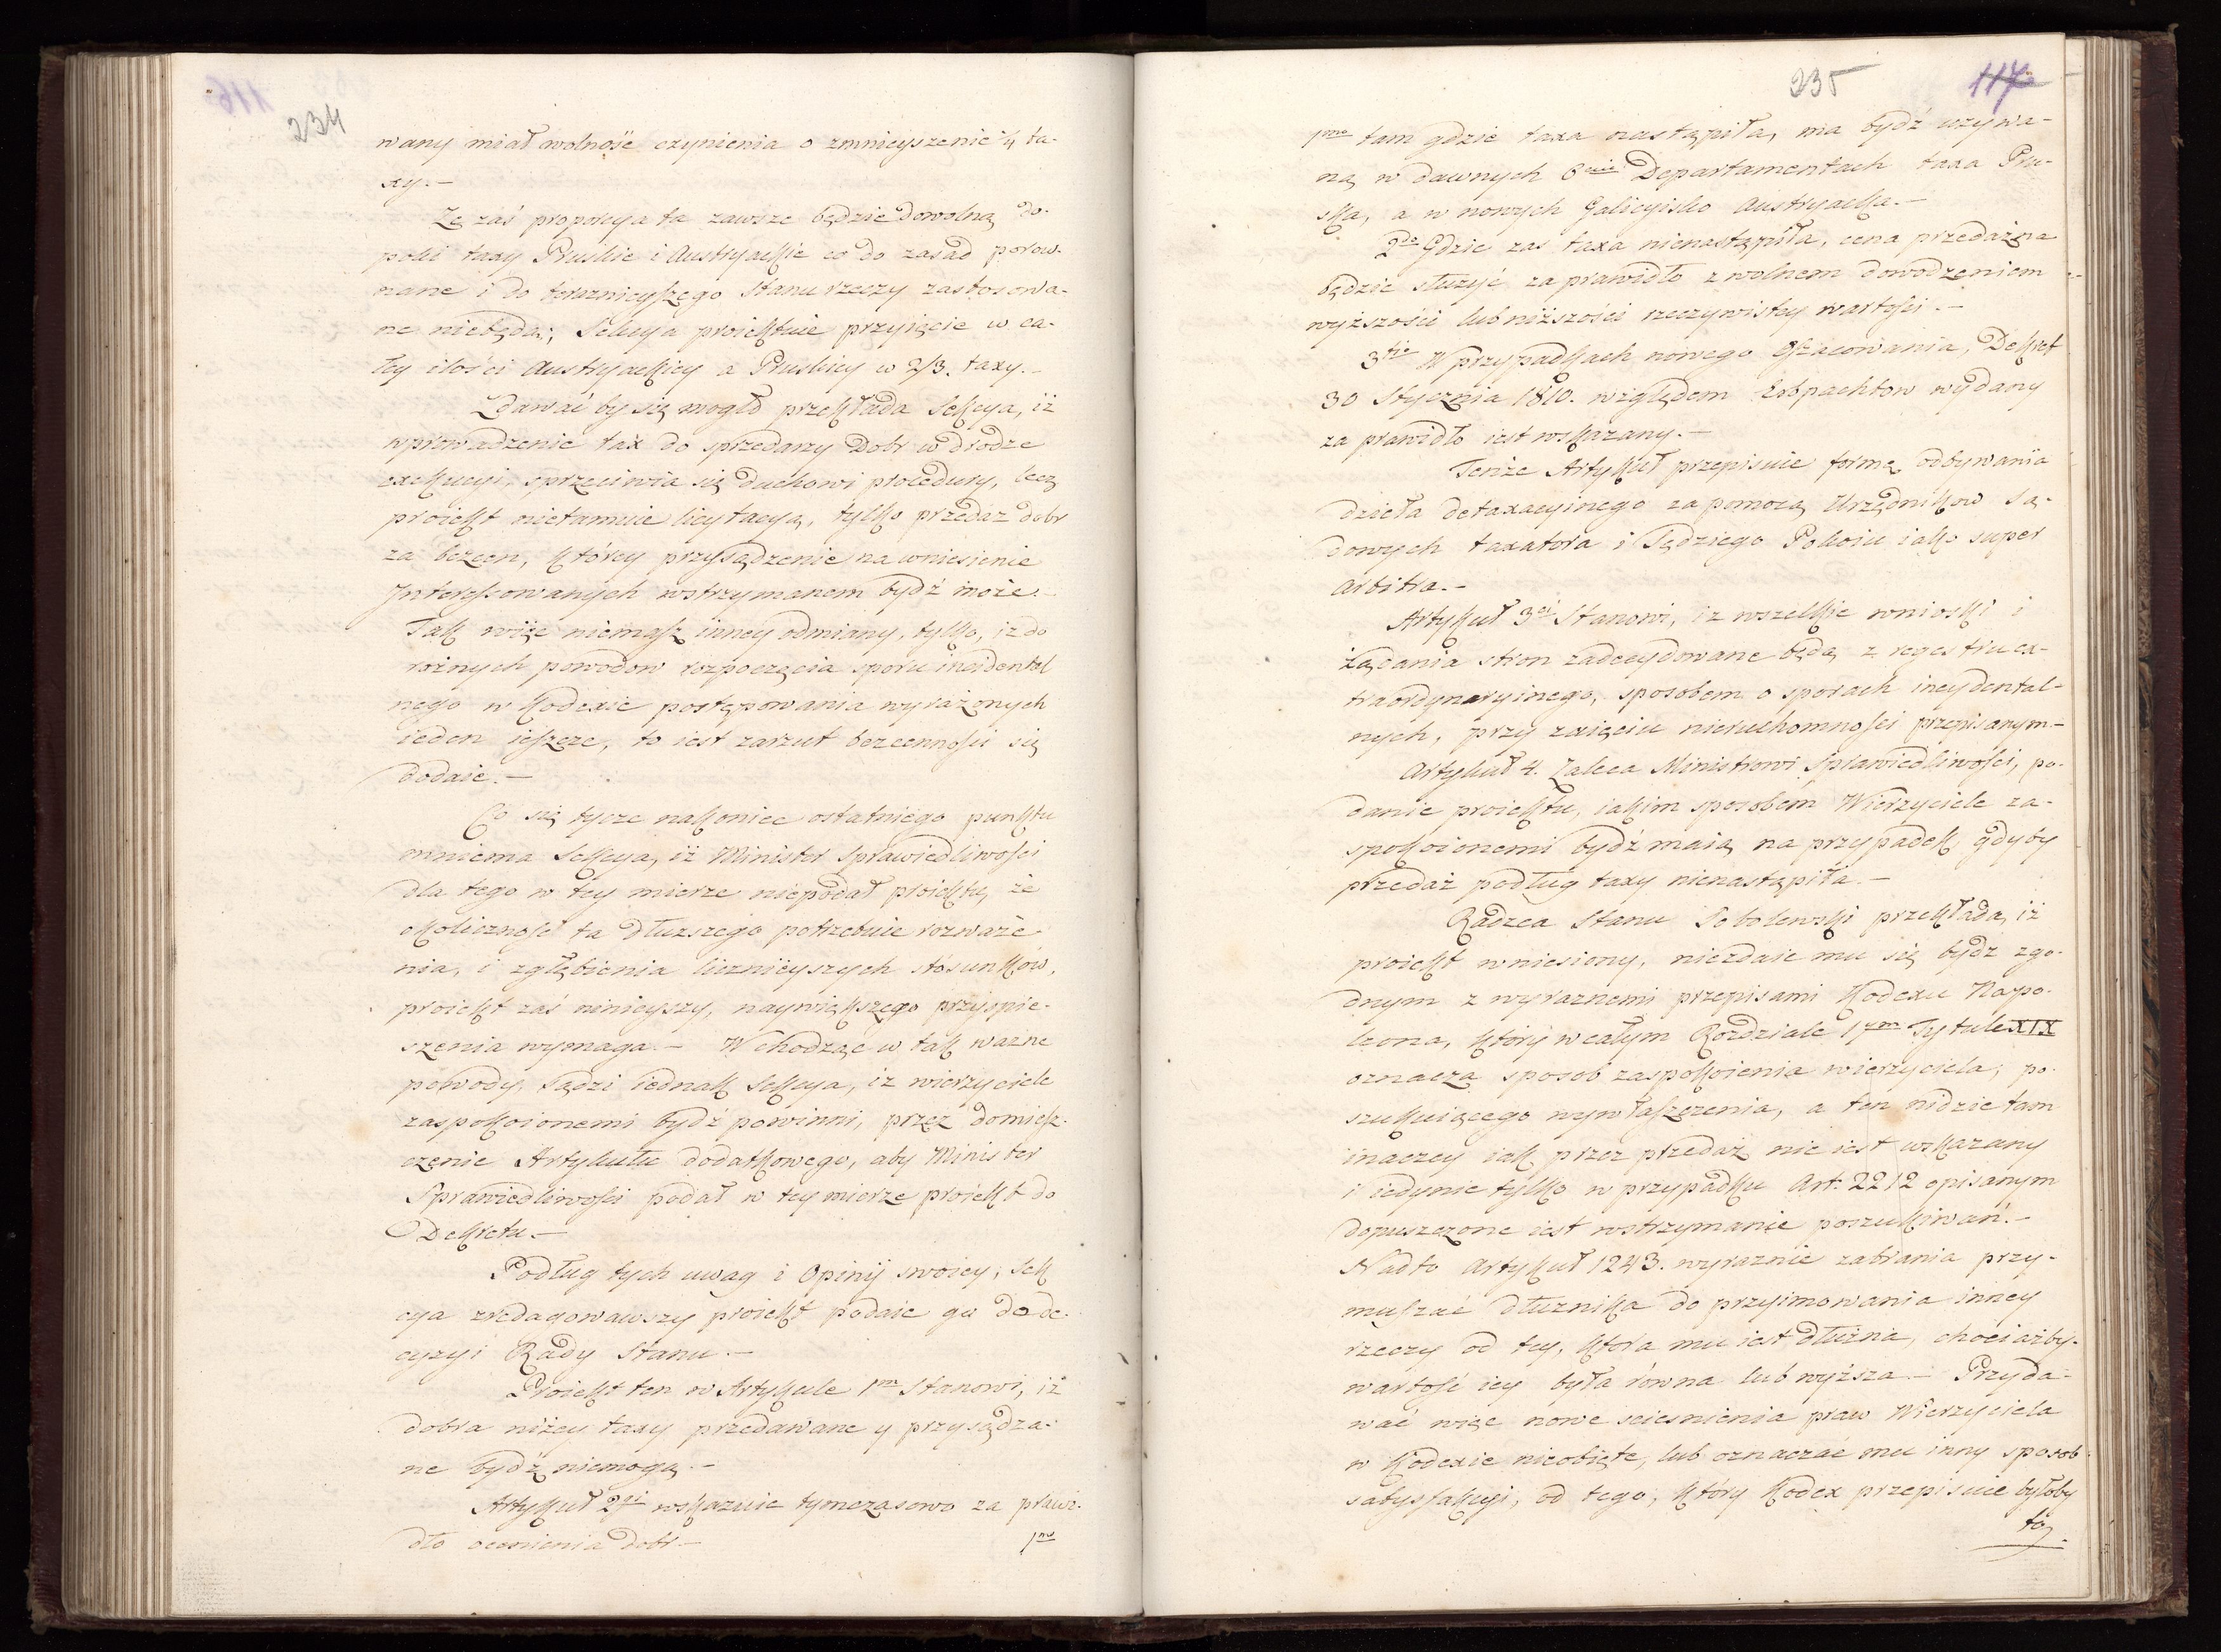 234
wany miał wolność czynienia o zmnieyszenie iey ta-
xy.-
Ze zaś proporcya ta zawsze będzie dowolną do-
poki taxy Pruskie i Austryackie co do zasad porow-
nane i do teraznieyszego Stanu rzeczy zastosowa-
ne niebędą; Sekcya proiektuie przyięcie w ca-
łey ilości Austryackiey a Pruskiey w 2/3. taxy.-
Zdawać by się mogło przekłada Sekcya, iż
wprowadzenie tax do sprzedarzy Dobr w drodze
exekucyi, sprzeciwia się duchowi procedury, lecz
proiekt nietamuie licytacyą, tylko przedaż dobr
za bezcen, którey przysądzenie na wniesienie
Interessowanych wstrzymanem bydź może.-
Tak więc niemasz inney odmiany, tylko, iż do
rożnych powodow rozpoczęcia sporu incidental
nego w Kodexie postępowania wyrażonych
ieden ieszcze, to iest zarzut bezcenności się
dodaie.-
Co się tycze nakoniec ostatniego punktu
mniema Sekcya, iż Minister Sprawiedliwości
dla tego w tey mierze niepodał proiektu, że
okoliczność ta dłuzszego potrzebuie rozważe-
nia, i zgłębienia licznieyszych stosunków,
proiekt zaś ninieyszy, naywiększego przyspie-
szenia wymaga.- Wchodząc w tak ważne
powody, sądzi iednak Sekcya, iż wierzyciele
zaspokoionemi bydź powinni, przez domiesz-
czenie Artykułu dodatkowego, aby Minister
Sprawiedliwości podał w tey mierze proiekt do
Dekretu.-
Podług tych uwag i Opinij swoiey, Sek
cya zredagowawszy proiekt podaie go do de-
cyzyi Rady Stanu.-
Proiekt ten w Artykule 1m Stanowi, iż
dobra niżey taxy przedawane y przysądza-
ne bydź niemogą.-
Artykuł 2gi wskazuie tymczasowo za prawi-
dło ocenienia dobr.-
1mo
235 117
1mo tam gdzie taxa nastąpiła, ma bydź uzywa-
ną w dawnych 6ciu Departamentach taxa Pru-
ska, a w nowych Galicyisko Austryacka.-
2do Gdzie zas taxa nienastąpiła, cena przedażna
będzie służyć za prawidło z wolnem dowodzeniem
wyższości lub niższości rzeczywistey wartości.-
3tio W przypadkach nowego Oszacowania, Dekret
30 Stycznia 1810. względem Erbpachtow wydany
za prawidło iest wskazany.-
Tenże Artykuł przepisuie formę odbywania
dzieła detaxacyinego za pomocą Urzędnikow Są-
dowych taxatora i Sędziego Pokoiu iako super
arbitra.-
Artykuł 3ci Stanowi, iż wszelkie wnioski i
żądania stron zadecydowane będą z regestru ex-
traordynaryinego, sposobem o sporach incydental-
nych, przy zaięciu nieruchomności przepisanym-
Artykuł 4. Zaleca Ministrowi Sprawiedliwości, po-
danie proiektu, iakim sposobem Wierzyciele za-
spokoionemi bydź maią na przypadek, gdyby
przedaż podług taxy nienastąpiła.-
Radzca Stanu Sobolewski przekłada, iż
proiekt wniesiony, niezdaie mu się bydz zgo-
dnym z wyraznemi przepisami Kodexu Napo-
leona, który w całym Rozdziale 1wm Tytule XIX
oznacza sposob zaspokoienia wierzyciela, po-
szukuiącego wywłaszczenia, a ten nidzie tam
inaczey iak przez przedaż nie iest wskazany
i iedynie tylko w przypadku Art. 2212 opisanym
dopuszczone iest wstrzymanie poszukiwań.-
Nadto Artykuł 1243. wyraznie zabrania przy-
muszać dłuznika do przyimowania inney
rzeczy od tey, ktora mu iest dłużna, chociażby-
wartość iey była równa lub wyższa.- Przyda-
wać więc nowe sciesnienia praw Wierzyciela
w Kodexie nieobięte, lub oznaczać mu inny sposob
satysfakcyi, od tego, który Kodex przepisuie byłoby
to